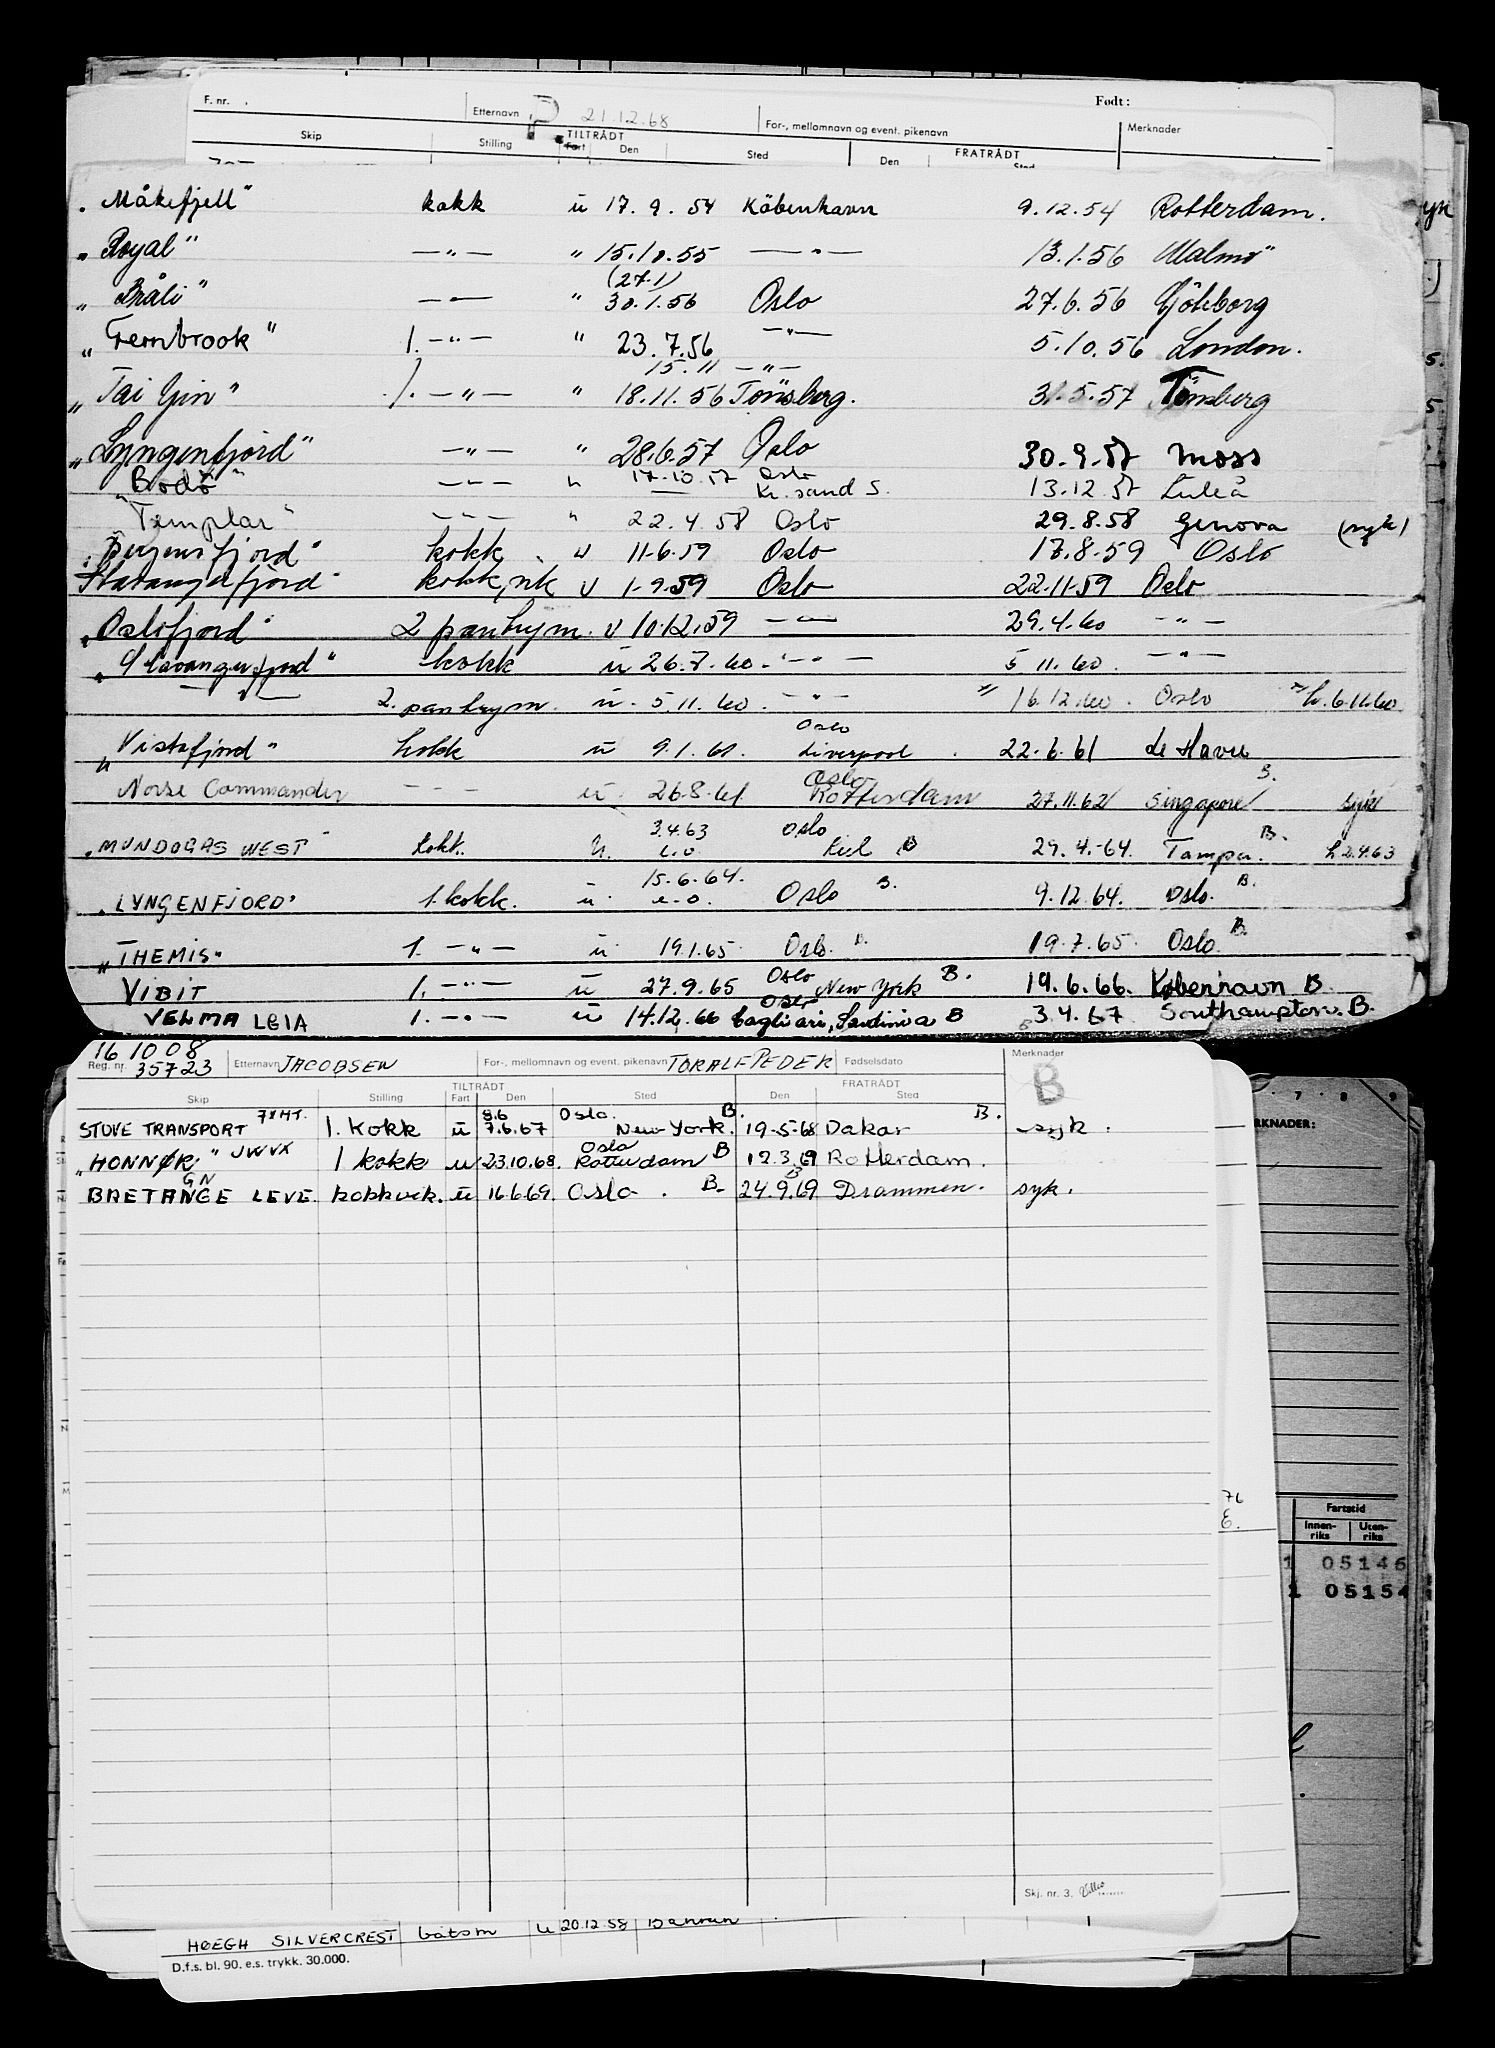 F. nr. Etternavn 21.12.68 For-, mellomnavn og event. pikenavn Født: Merknader
Skip Stilling TILTRÅDT Fart Den Sted Den FRATRÅDT Sted
"Måkefjell" kokk u 17.9.54 Köbenhavn 9.12.54 Rotterdam.
"Royal" —"— " 15.10.55 —"— 13.1.56 Malmö
(27.1)
"Bråli" —"— " 30.1.56 Oslo 27.6.56 Göteborg
"Fernbrook" 1. —"— " 23.7.56 —"— 5.10.56 London.
15.11 —"—
"Tai Yin" 1. —"— " 18.11.56 Tönsberg. 31.5.57 Tönsberg
"Lyngenfjord" —"— " 28.6.57 Oslo 30.9.57 Moss
17.10.57 Oslo
"Bodö" —"— " — Kr. sand S. 13.12.57 Luleå
"Templar" —"— " 22.4.58 Oslo 29.8.58 Genova (syk)
"Bergensfjord" kokk u 11.6.59 Oslo 17.8.59 Oslo
Stavangerfjord" kokk, vik u 1.9.59 Oslo 22.11.59 Oslo
"Oslofjord" 2 pantrym. u 10.12.59 —"— 29.4.60 —"—
"Stavangerfjord" kokk u 26.7.60 —"— 5.11.60. —"—
—"— 2. pantrym. u. 5.11.60. —"— x) 16.12.60. Oslo x) h. 6.11.60
Oslo
"Vistafjord" kokk u 9.1.61. Liverpool. 22.6.61 Le Havre
Oslo
Norse Commander —"— u. 26.8.61 Rotterdam 27.11.62 Singapore B. syk
3.4.63 Oslo
"MUNDOGAS WEST" kokk. u. e.o. Kiel B 29.4.-64. Tampa. B. h 2.4.63
15.6.64.
"LYNGENFJORD" 1. kokk. u. e.o. Oslo B. 9.12.64. Oslo. B.
"THEMIS" 1. —"— u. 19.1.65. Oslo. B. 19.7.65. Oslo. B.
Oslo
VIBIT 1. —"— u 27.9.65 New York B. 19.6.66. København B.
Oslo
VELMA LEIA 1. —"— u 14.12.66 Cagliari, Sardinia B 3.4.67 Southampton. B.
161008
Reg. nr. 35723 Etternavn JACOBSEN For-, mellomnavn og event. pikenavn TORALF PEDER Fødselsdato Merknader
B
Skip Stilling TILTRÅDT Fart Den Sted FRATRÅDT Den Sted
8.6 Oslo.
STOVE TRANSPORT 1. kokk u 7.6.67 New York. B. 19-5-68 Dakar B. syk.
Oslo
"HONNØR" JWVX 1 kokk u 23.10.68. Rotterdam B 12.3.69 Rotterdam.
GN B
BRETANGE LEVE. kokkvik. u 16.6.69. Oslo. B. 24.9.69 Drammen. syk.
Skj. nr. 3.
HØEGH SILVERCREST båtsm u 20.12.58
D.f.s. bl. 90. e.s. trykk. 30.000.
7 8 9
MERKNADER:
Fartstid
Innenriks Utenriks
1 05146
1 05154